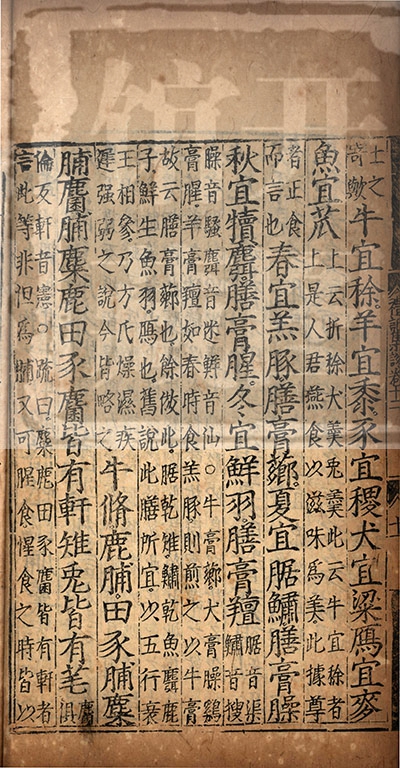 士之
尚黴 牛宜稌羊宜黍豕宜稷犬宜粱鴈宜麥
魚宜苽 上云折稌犬羹兎羹此云牛宜稌者
上是人君燕食以滋味爲美此據尊
者正食
而言也 春宜羔豚膳膏薌夏宜腒鱐膳膏臊
秋宜犢麛膳膏腥冬宜鮮羽膳膏羶 腒音渠
鱐音搜
臊音騷麛音迷鱻音仙○牛膏薌犬膏臊鷄
膏腥羊膏羶如春時食羔豚則煎之以牛膏
故云膳膏薌也餘倣此腒乾雉鱐乾魚麛鹿
子鮮生魚羽鴈也舊說此膳所宜以五行衰
王相參乃方氏燥濕疾
遲强弱之說今皆略之 牛脩鹿脯田豕脯麋
脯麕脯麋鹿田豕麕皆有軒雉兎皆有芼 麕
俱
倫反軒音憲○疏曰麋鹿田豕麕皆有軒者
言此等非但爲脯又可腥食腥食之時皆以